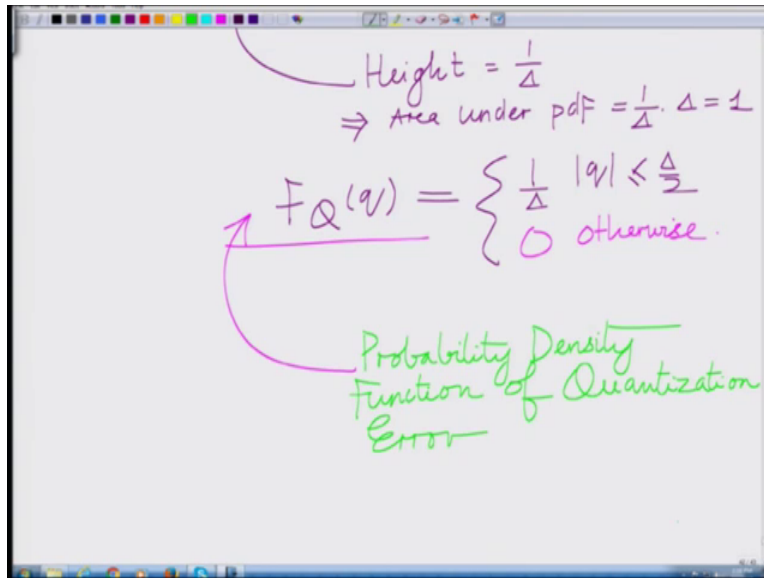 Height = 1/Δ
⇒ Area under pdf = 1/Δ . Δ = 1
F_Q(q) = { 1/Δ |q| ≤ Δ/2
0 otherwise.
Probability Density
Function of Quantization
Error